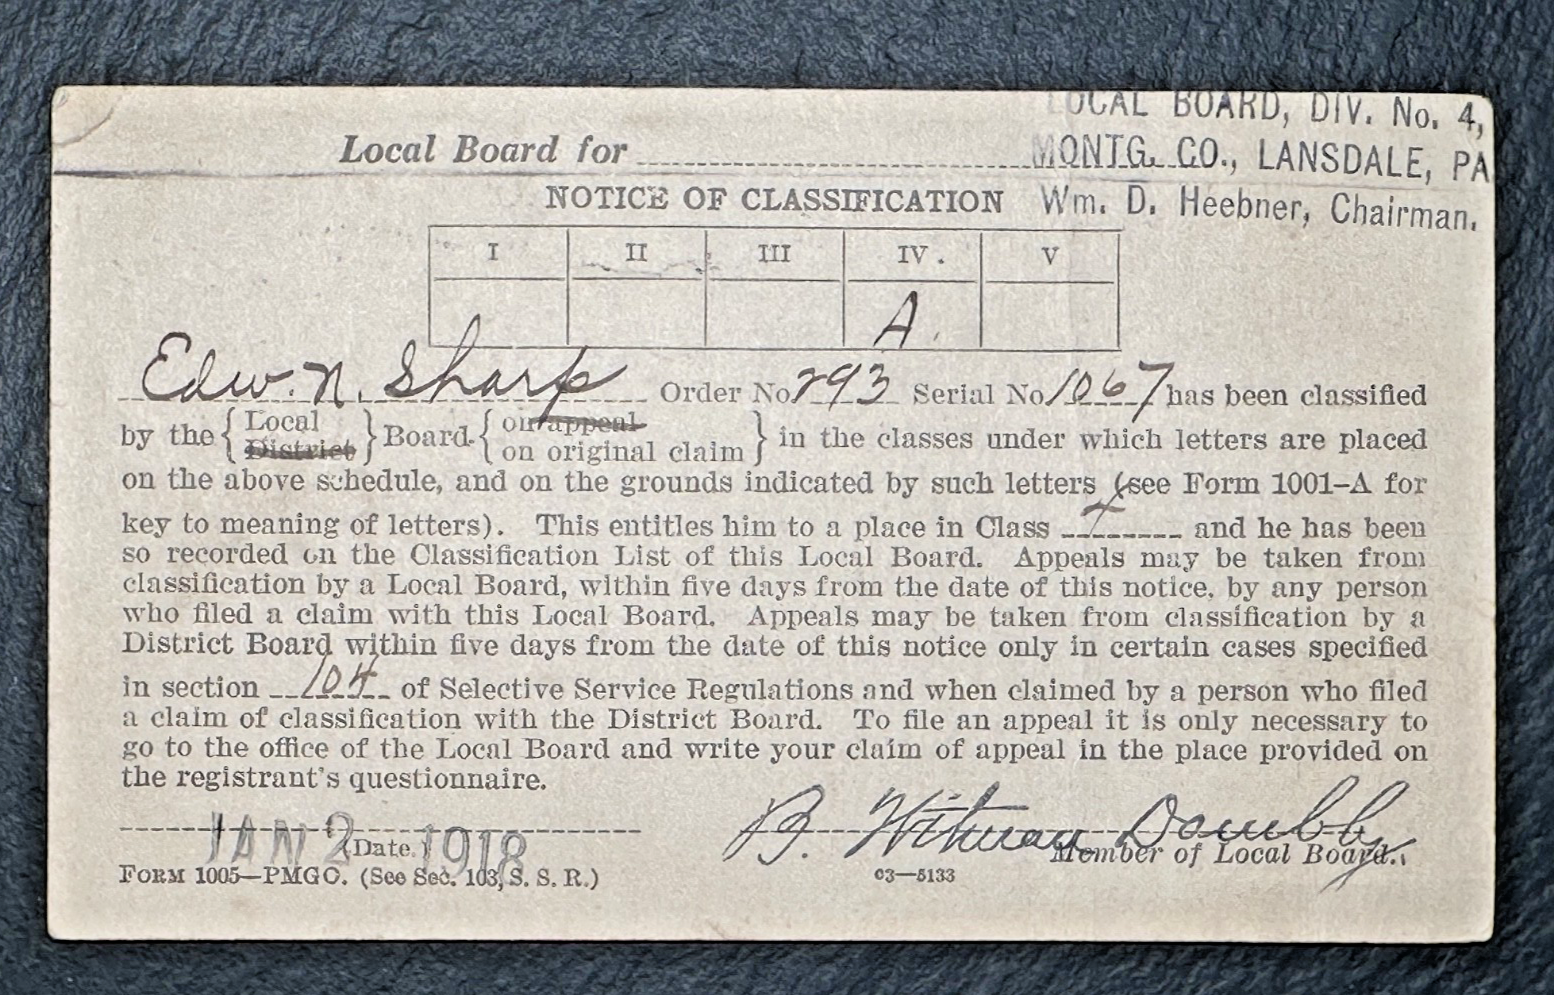 LOCAL BOARD, DIV. No. 4,
Local Board for MONTG. CO., LANSDALE, PA
NOTICE OF CLASSIFICATION Wm. D. Heebner, Chairman.
I II III IV. V
A.
Edw. N. Sharp Order No 293 Serial No 1067 has been classified
by the { Local District } Board { on appeal on original claim } in the classes under which letters are placed
on the above schedule, and on the grounds indicated by such letters (see Form 1001–A for
key to meaning of letters). This entitles him to a place in Class and he has been
so recorded on the Classification List of this Local Board. Appeals may be taken from
classification by a Local Board, within five days from the date of this notice, by any person
who filed a claim with this Local Board. Appeals may be taken from classification by a
District Board within five days from the date of this notice only in certain cases specified
in section 104 of Selective Service Regulations and when claimed by a person who filed
a claim of classification with the District Board. To file an appeal it is only necessary to
go to the office of the Local Board and write your claim of appeal in the place provided on
the registrant's questionnaire.
JAN 2 1918 B. Witman Dambly
(Date.) Member of Local Board.
FORM 1005—PMGO. (See Sec. 103, S. S. R.) 03—5133